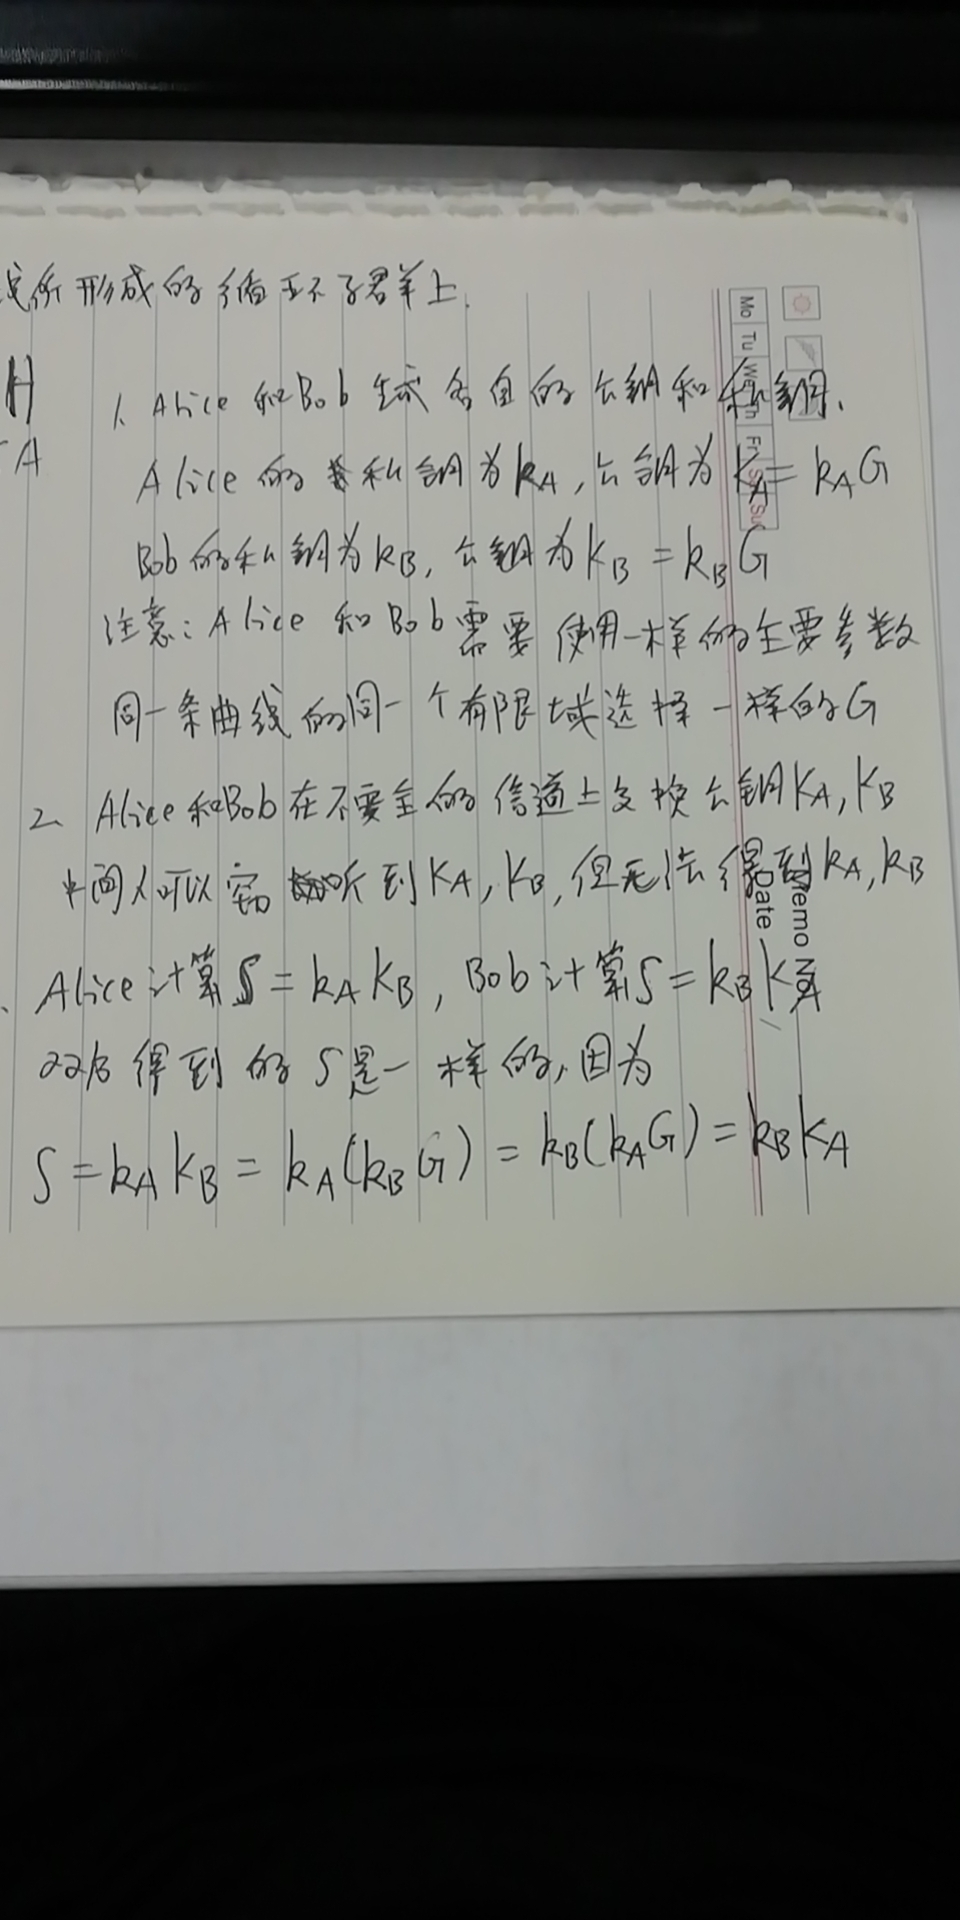 所形成的循环子群上.
H
A
1. Alice和Bob生成各自的公钥和私钥.
Alice的私钥为kA, 公钥为KA = kAG
Bob的私钥为kB, 公钥为KB = kBG
注意: Alice和Bob需要使用一样的主要参数
同一条曲线的同一个有限域选择一样的G
2. Alice和Bob在不安全的信道上交换公钥KA, KB
中间人可以窃听到KA, KB, 但无法得到kA, kB
Alice计算S = kAKB, Bob计算S = kBKA
得到的S是一样的, 因为
S = kAKB = kA(kBG) = kB(kAG) = kBKA
Mo Tu We Th Fr Sa Su
Memo No.
Date